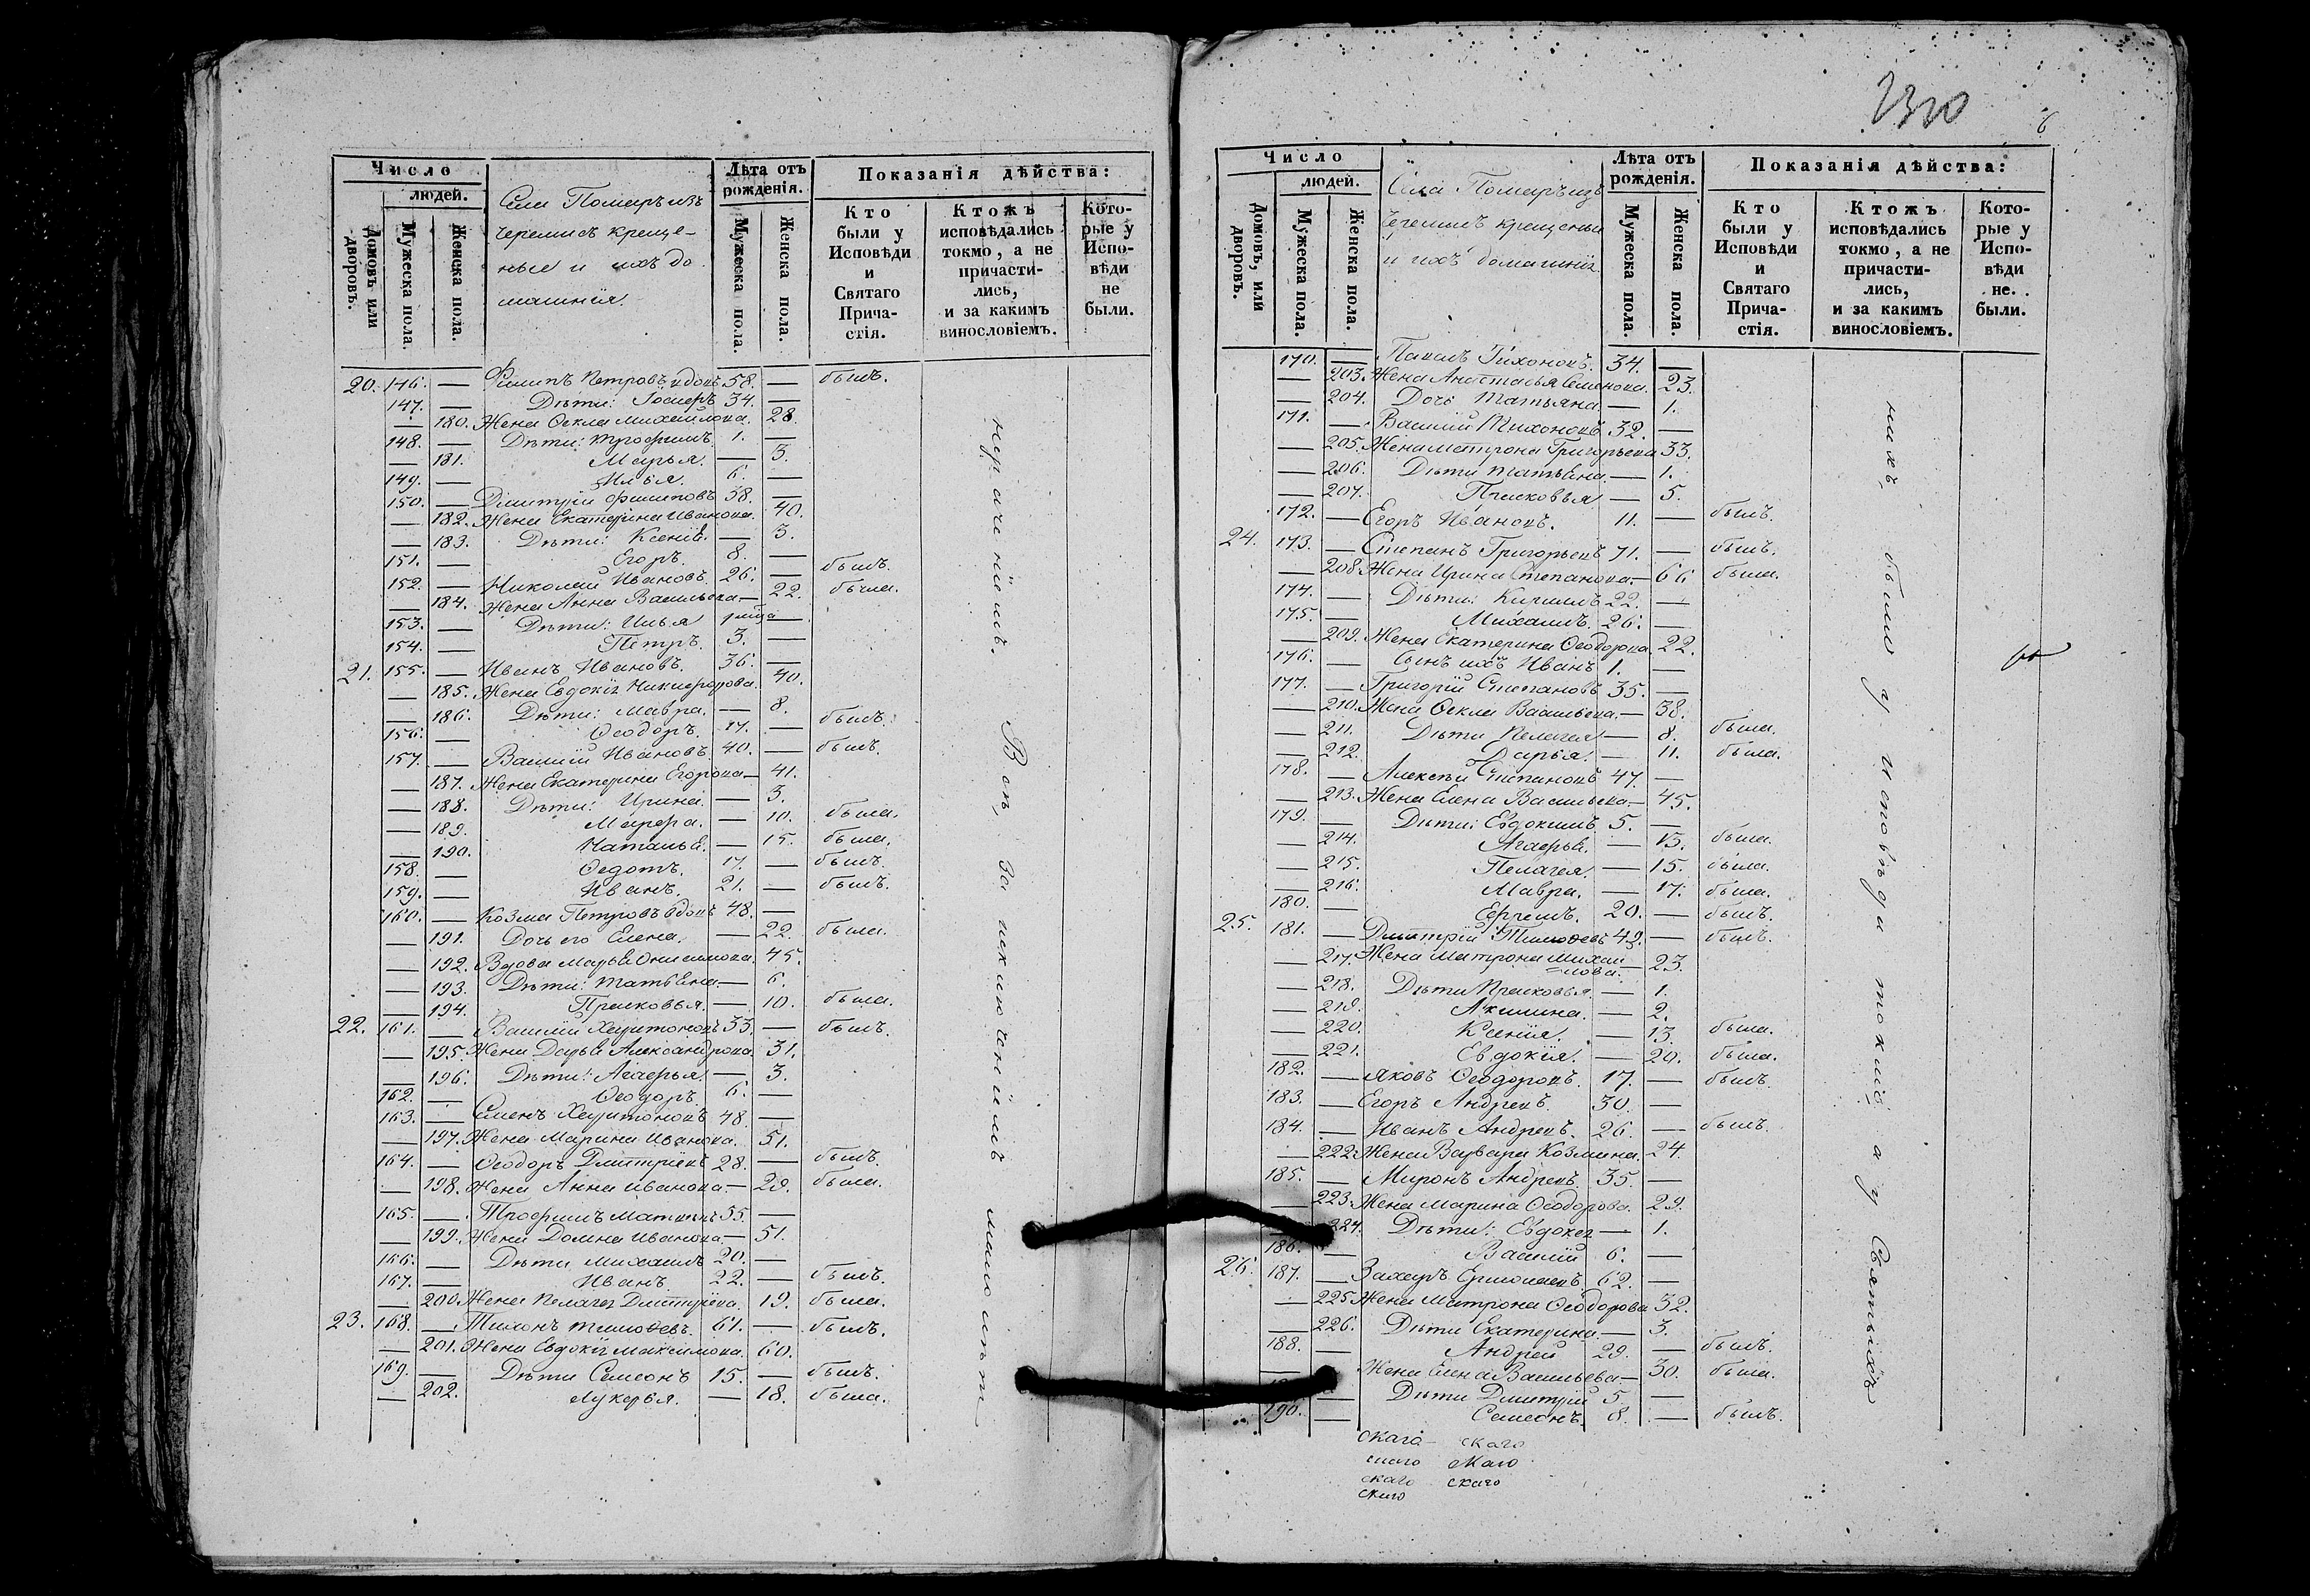 Число
людей.
Домовъ или дворовъ.
Мужеска пола.
Женска пола.
Села Помаръ изъ
черемисъ креще-
ные и ихъ до
машнія.
Лѣта отъ рожденія.
Мужеска пола.
Женска пола.
Показанія дѣйства:
Кто были у Исповѣди и Святаго Прича-стія.
Ктожъ исповѣдались токмо, а не причасти-лись, и за какимъ винословіемъ.
Кото-рые у Испо-вѣди не были.
20. 146. — Филипъ Петровъ вдовъ 58. — былъ.
147. — Дѣти: 34. —
— 180. Жена Ѳекла Михайлова. 28.
148. — Дѣти: Трофимъ 1. —
— 181. Марья. — 3.
149. — Илья. 6. —
150. — Дмитрій Филиповъ 38. —
— 182. Жена Екатерина Иванова. 40.
— 183. Дѣти: Ксенія. — 3.
151. — Егоръ. 8. —
152. — Николай Ивановъ. 26. — былъ.
— 184. Жена Анна Васильева — 22. была.
153. — Дѣти: Илья —
154. — Петръ. 3. —
21. 155. — Иванъ Ивановъ. 36. —
— 185. Жена Евдокія Никифорова. 40.
— 186. Дѣти: Мавра. — 8.
156. — Ѳеодоръ. 17. — былъ.
157. — Василій Ивановъ 40. — былъ.
— 187. Жена Екатерина Егорова — 41.
— 188. Дѣти: Ирина. — 3.
— 189. Марфа. — 10. была.
— 190. Наталья. — 15. была.
158. — Ѳедотъ. 17. — былъ.
159. — Иванъ. 21. — былъ.
160. — Козма Петровъ вдовъ 48. —
— 191. Дочь его Елена. — 22. была.
— 192. Вдова Марья Онисимова. 45.
— 193. Дѣти: Татьяна — 6.
— 194. Прасковья. — 10. была.
22. 161. — Василій Харитоновъ 33. — былъ.
— 195. Жена Дарья Александрова. 31.
— 196. Дѣти: Агафья. — 3.
162. — Ѳеодоръ. 6. —
163. — Семенъ Харитоновъ 48. —
— 197. Жена Марина Иванова. 51.
164. — Ѳеодоръ Дмитріевъ 28. — былъ.
— 198. Жена Анна Иванова. — 29. была.
165. — Трофимъ 55. —
— 199. Жена Домна Иванова. — 51.
166. — Дѣти Михаилъ 20. —
167. — Иванъ. 22. — былъ.
— 200. Жена Пелагея Дмитріева. 19. была.
23. 168. — Тихонъ Тимоѳеевъ. 61. — былъ.
— 201. Жена Евдокія Максимова. 60.
169. — Дѣти Семеонъ 15. — былъ.
— 202. Лукерья. — 18. была.
нераченіемъ. Всѣ, за исключеніемъ малолѣт
6
Число
людей.
Домовъ, или дворовъ.
Мужеска пола.
Женска пола.
Села Помаръ изъ
черемисъ крещеные
и ихъ домашнія.
Лѣта отъ рожденія.
Мужеска пола.
Женска пола.
Показанія дѣйства:
Кто были у Исповѣди и Святаго Прича-стія.
Ктожъ исповѣдались токмо, а не причасти-лись, и за какимъ винословіемъ.
Кото-рые у Испо-вѣди не были.
170. — Павелъ Тихоновъ. 34. —
— 203. Жена Анастасья Семенова. 23.
— 204. Дочь Татьяна. — 1.
171. — Василій Тихоновъ 32. —
— 205. Жена Матрона Григорьева 33.
— 206. Дѣти Татьяна. — 1.
— 207. Прасковья — 5.
172. — Егоръ Ивановъ. 11. — былъ.
24. 173. — Степанъ Григорьевъ 71. — былъ.
— 208. Жена Ирина Степанова. — 66 была.
174. — Дѣти: Кирилъ 22. —
175. — Михаилъ. 26. —
— 209. Жена Екатерина Ѳеодорова. 22.
176. — Сынъ ихъ Иванъ 1. —
177. — Григорій Степановъ 35. —
— 210. Жена Ѳекла Васильева. — 38.
— 211. Дѣти Пелагея — 8. была.
— 212. Дарья. — 11. была.
178. — Алексѣй Степановъ 47. —
— 213. Жена Елена Васильева — 45.
179. — Дѣти: Евдокимъ 5. —
— 214. Агафья. — 13. была.
— 215. Пелагея. — 15. была.
— 216. Мавра. — 17. была.
180. — Ефремъ. 20. — былъ.
25. 181. — Дмитрій Тимоѳеевъ 49. — былъ.
— 217. Жена Матрона Михай
=лова. — 23.
— 218. Дѣти Прасковья. — 1.
— 219. Акилина. — 2.
— 220. Ксенія. — 13. была.
— 221. Евдокія. — 20. была.
182. — Яковъ Ѳеодоровъ. 17. — былъ.
183. — Егоръ Андреевъ. 30. —
184. — Иванъ Андреевъ. 26. — былъ.
— 222. Жена Варвара Козмина. 24.
185. — Миронъ Андреевъ. 35. —
— 223. Жена Марина Ѳеодорова. 29.
224. Дѣти: Евдокія — 1.
186. — Василій 6. —
26. 187. — Захаръ 62. —
— 225. Жена Матрона Ѳеодорова 32.
— 226. Дѣти Екатерина. — 3.
188. — Андрей 29. — былъ.
— Жена Елена Васильева — 30. была.
— Дѣти Дмитрій 5. —
190. — Семеонъ. 8. — былъ.
нихъ, были у исповѣди токмо, а у Святыхъ
скаго скаго
скаго скаго
скаго скаго
скаго